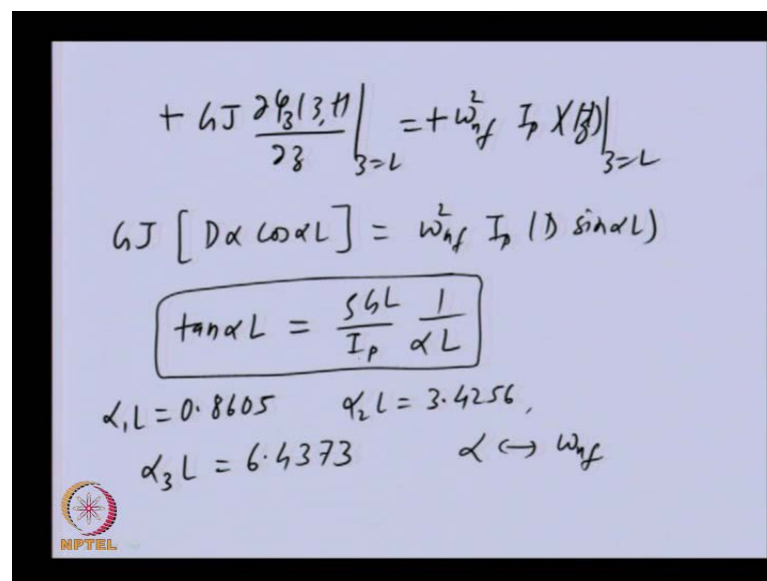 + GJ ∂φ_z(z,t)/∂z |_{z=L} = + ω_{nf}^2 I_p χ(z)|_{z=L}
GJ [ Dα cos αL ] = ω_{nf}^2 I_p (D sin αL)
tan αL = ρGL/I_p 1/αL
α_1 L = 0.8605 α_2 L = 3.4256,
α_3 L = 6.4373 α ↔ ω_{nf}
NPTEL